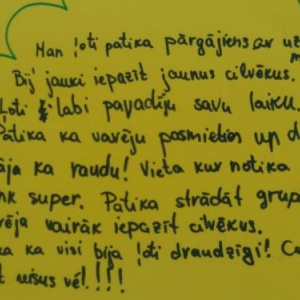 Man ļoti patika pārgājiens ar uz
Bij jauki iepazīt jaunus cilvēkus.
Ļoti labi pavadīju savu laiku.
Patika ka varēju pasmieties un d
āja ka raudu! Vieta kur notika
nk super. Patika strādāt grup
rēja vairāk iepazīt cilvēkus.
ka ka visi bija ļoti draudzīgi! Ce
t mūsus vēl!!!!